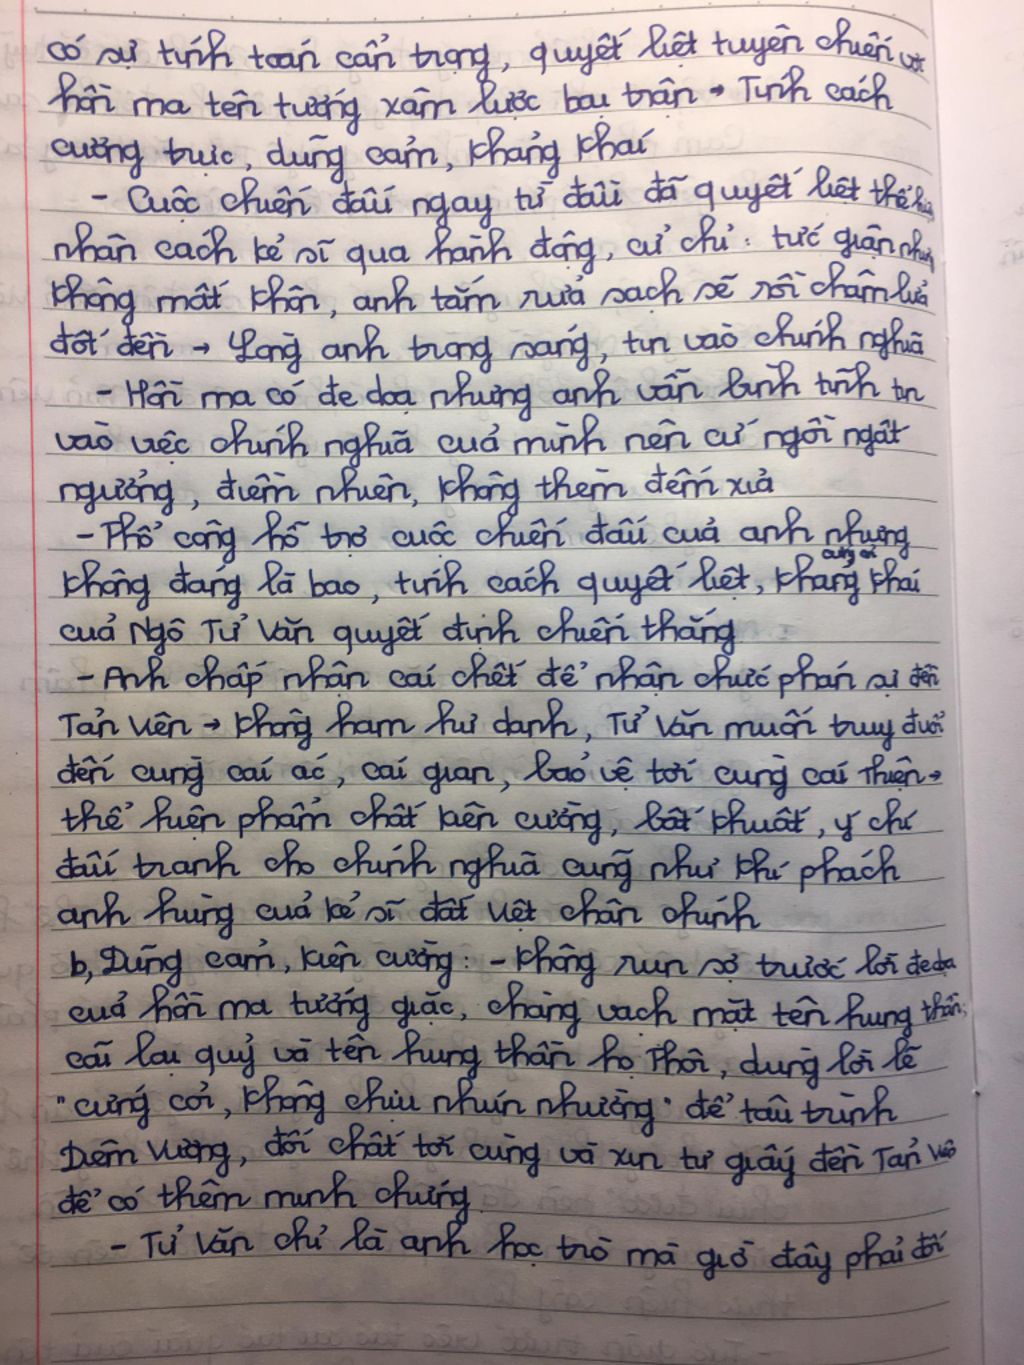 có sự tính toán cẩn trọng, quyết liệt tuyên chiến với
hồn ma tên tướng xâm lược bại trận → Tính cách
cương trực, dũng cảm, khảng khái
- Cuộc chiến đấu ngay từ đầu đã quyết liệt thể hiện
nhân cách kẻ sĩ qua hành động, cử chỉ: tức giận nhưng
không mất khôn, anh tắm rửa sạch sẽ rồi châm lửa
đốt đền → Lòng anh trong sáng, tin vào chính nghĩa
- Hồn ma có đe doạ nhưng anh vẫn bình tĩnh tin
vào việc chính nghĩa của mình nên cứ ngồi ngất
ngưởng, điềm nhiên, không thèm đếm xỉa
- Thổ công hỗ trợ cuộc chiến đấu của anh nhưng
không đáng là bao, tính cách quyết liệt, khảng khái
của Ngô Tử Văn quyết định chiến thắng
- Anh chấp nhận cái chết để nhận chức phán sự đền
Tản Viên → không ham hư danh, Tử Văn muốn truy đuổi
đến cùng cái ác, cái gian, bảo vệ tới cùng cái thiện →
thể hiện phẩm chất kiên cường, bất khuất, ý chí
đấu tranh cho chính nghĩa cũng như khí phách
anh hùng của kẻ sĩ đất Việt chân chính
b, Dũng cảm, kiên cường: - không run sợ trước lời đe doạ
của hồn ma tướng giặc, chàng vạch mặt tên hung thần;
cãi lại quỷ và tên hung thần họ Thôi, dùng lời lẽ
"cứng cỏi, không chịu nhún nhường" để tâu trình
Diêm Vương, đối chất tới cùng và xin tư giấy đền Tản Viên
để có thêm minh chứng
- Tử Văn chỉ là anh học trò mà giờ đây phải đối